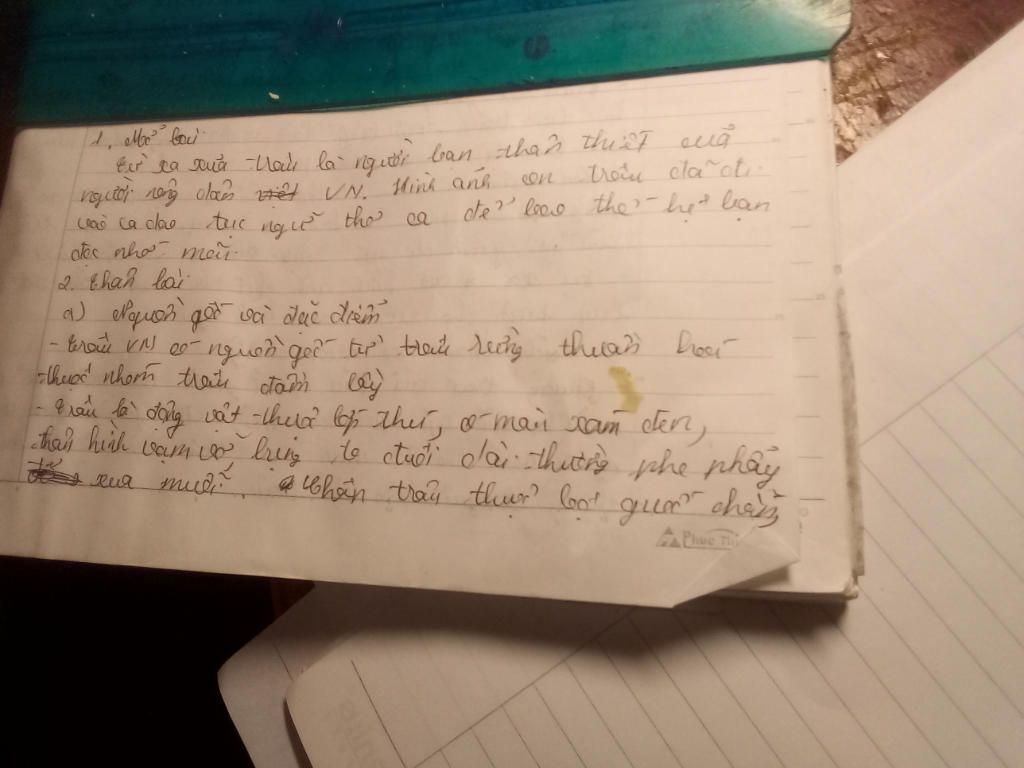 1. Mở bài
Từ xa xưa trâu là người bạn thân thiết của
người nông dân VN. Hình ảnh con trâu đã đi
vào ca dao tục ngữ thơ ca để bao thế hệ bạn
đọc nhớ mãi.
2. Thân bài
a) Nguồn gốc và đặc điểm
- Trâu VN có nguồn gốc từ trâu rừng thuần hoá
thuộc nhóm trâu đầm lầy
- Trâu là động vật thuộc lớp thú, có màu xám đen,
thân hình vạm vỡ bụng to đuôi dài thường phe phẩy
xua muỗi. Chân trâu thuộc loại guốc chẵn,
Phuc Thi